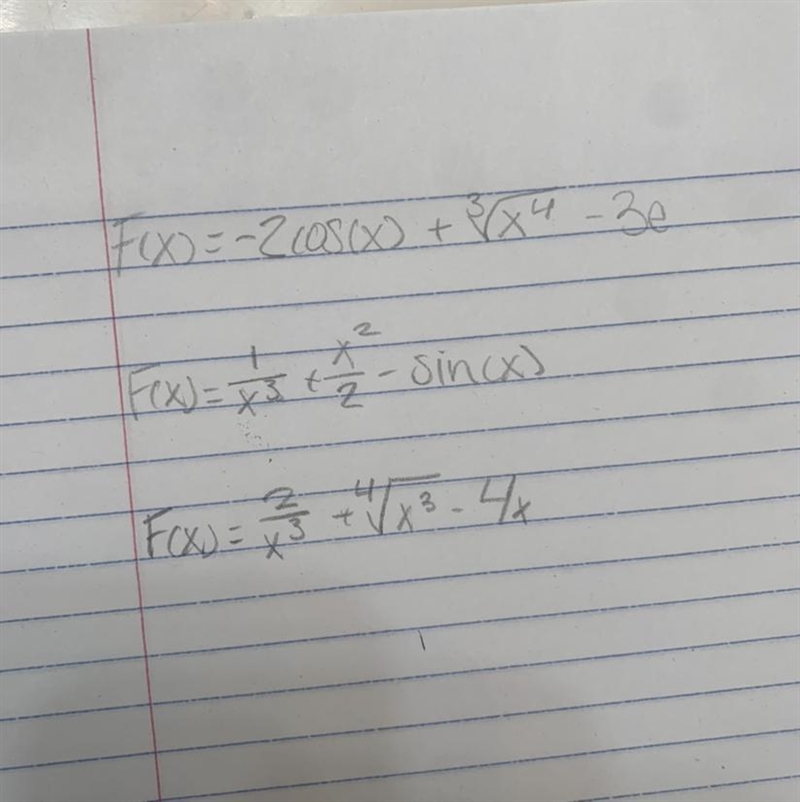 F(x) = -2cos(x) + ∛x⁴ - 3e
F(x) = 1/x³ + x²/2 - sin(x)
F(x) = 2/x³ + ∜x³ - 4x